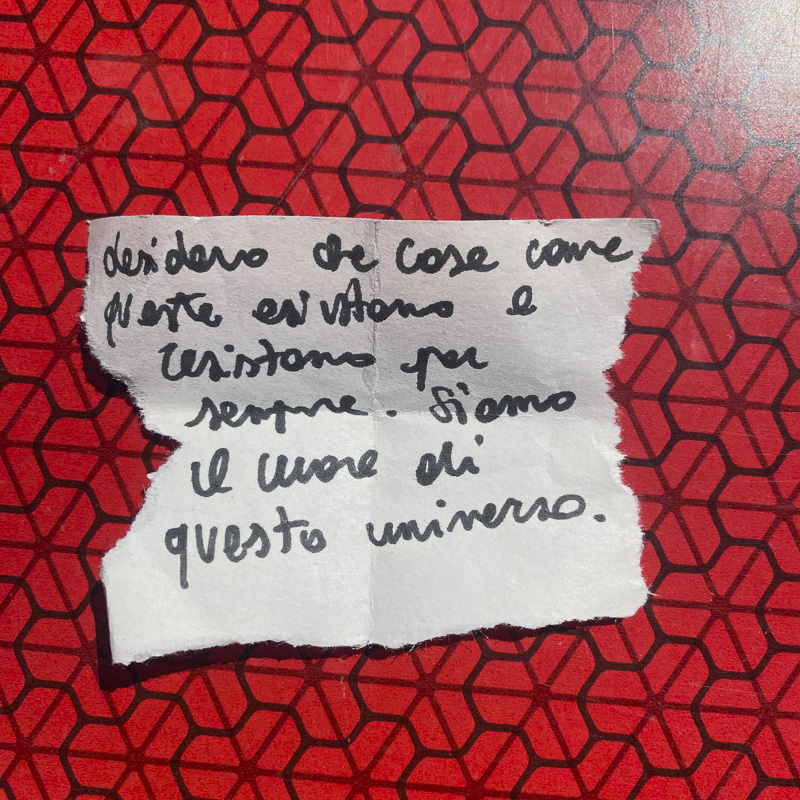 desidero che cose come
queste esistano e
resistano per
sempre. Siamo
il cuore di
questo universo.